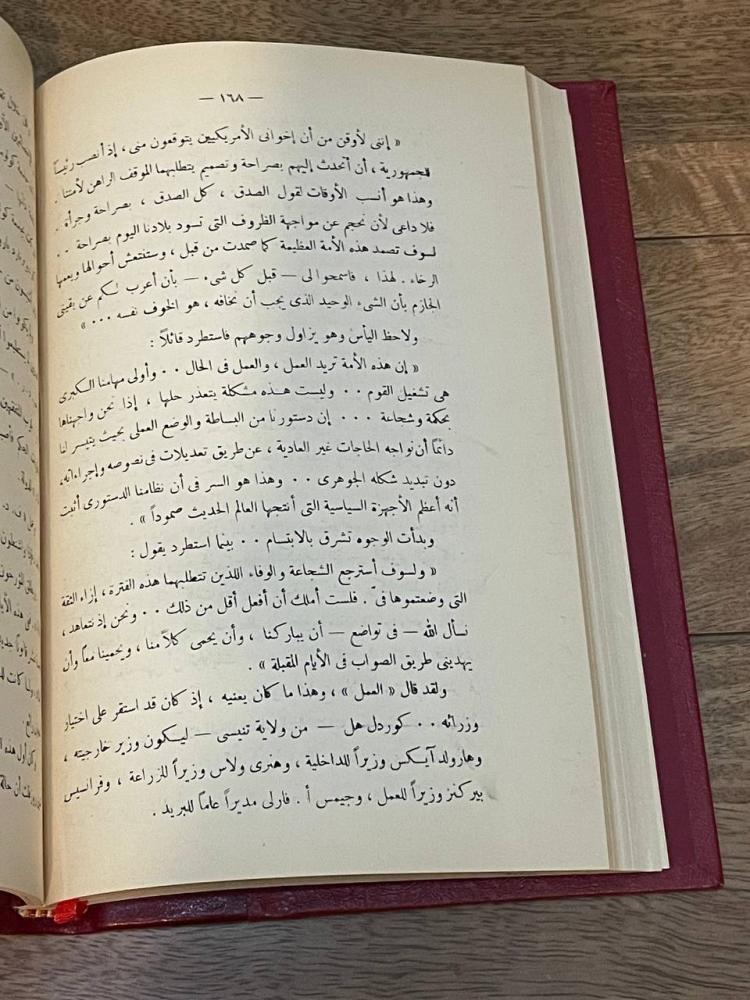 — ١٦٨ —
« إننى لأوقن من أن إخوانى الأمريكيين يتوقعون منى ، إذ أنصب رئيساً
للجمهورية ، أن أتحدث إليهم بصراحة وتصميم يتطلبهما الموقف الراهن لأمتنا .
وهذا هو أنسب الأوقات لقول الصدق ، كل الصدق ، بصراحة وجرأة .
فلا داعى لأن نحجم عن مواجهة الظروف التى تسود بلادنا اليوم بصراحة . .
لسوف تصمد هذه الأمة العظيمة كما صمدت من قبل ، وستنتعش أحوالها ويعمها
الرخاء . لهذا ، فاسمحوا لى — قبل كل شىء — بأن أعرب لكم عن يقينى
الجازم بأن الشىء الوحيد الذى يجب أن نخافه ، هو الخوف نفسه . . . »
ولاحظ اليأس وهو يزاول وجوههم فاستطرد قائلاً :
« إن هذه الأمة تريد العمل ، والعمل فى الحال . . وأولى مهامنا الكبرى
هى تشغيل القوم . . وليست هذه مشكلة يتعذر حلها ، إذا نحن واجهناها
بحكمة وشجاعة . . . إن دستورنا من البساطة والوضع العملى بحيث يتيسر لنا
دائماً أن نواجه الحاجات غير العادية ، عن طريق تعديلات فى نصوصه وإجراءاته،
دون تبديد شكله الجوهرى . . وهذا هو السر فى أن نظامنا الدستورى أثبت
أنه أعظم الأجهزة السياسية التى أنتجها العالم الحديث صموداً » .
وبدأت الوجوه تشرق بالابتسام . . بينما استطرد يقول :
« ولسوف أسترجع الشجاعة والوفاء اللذين تتطلبهما هذه الفترة ، إزاء الثقة
التى وضعتموها فىّ . فلست أملك أن أفعل أقل من ذلك . . ونحن إذ نتعاهد ،
نسأل الله — فى تواضع — أن يباركنا ، وأن يحمى كلاّ منا ، ويحمينا معاً وأن
يهدينى طريق الصواب فى الأيام المقبلة » .
ولقد قال « العمل » ، وهذا ما كان يعنيه ، إذ كان قد استقر على اختيار
وزرائه . . كوردل هل — من ولاية تنيسى — ليكون وزير خارجيته ،
وهارولد آيكس وزيراً للداخلية ، وهنرى ولاس وزيراً للزراعة ، وفرانسيس
بيركنز وزيراً للعمل ، وجيمس أ . فارلى مديراً عاماً للبريد .